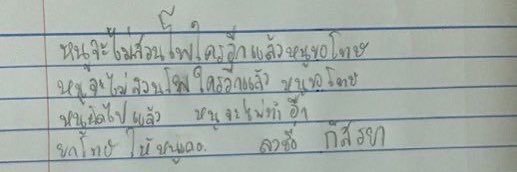 หนูจะไม่สวนโพใครอีกแล้วหนูขอโทษ
หนูจะไม่สวนโพใครอีกแล้ว หนูขอโทษ
หนูผิดไปแล้ว หนูจะไม่ทำอีก
ยกโทษให้หนูเถอะ ลงชื่อ